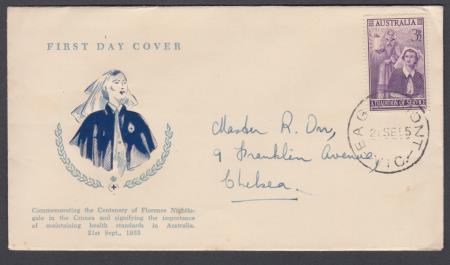 FIRST DAY COVER
AUSTRALIA
3½
A TRADITION OF SERVICE
EAG ONT
21 SE 55
VIC
Master R. Orr,
9 Franklin Avenue,
Chelsea.
Commemorating the Centenary of Florence Nightin-
gale in the Crimea and signifying the importance
of maintaining health standards in Australia.
21st Sept., 1955